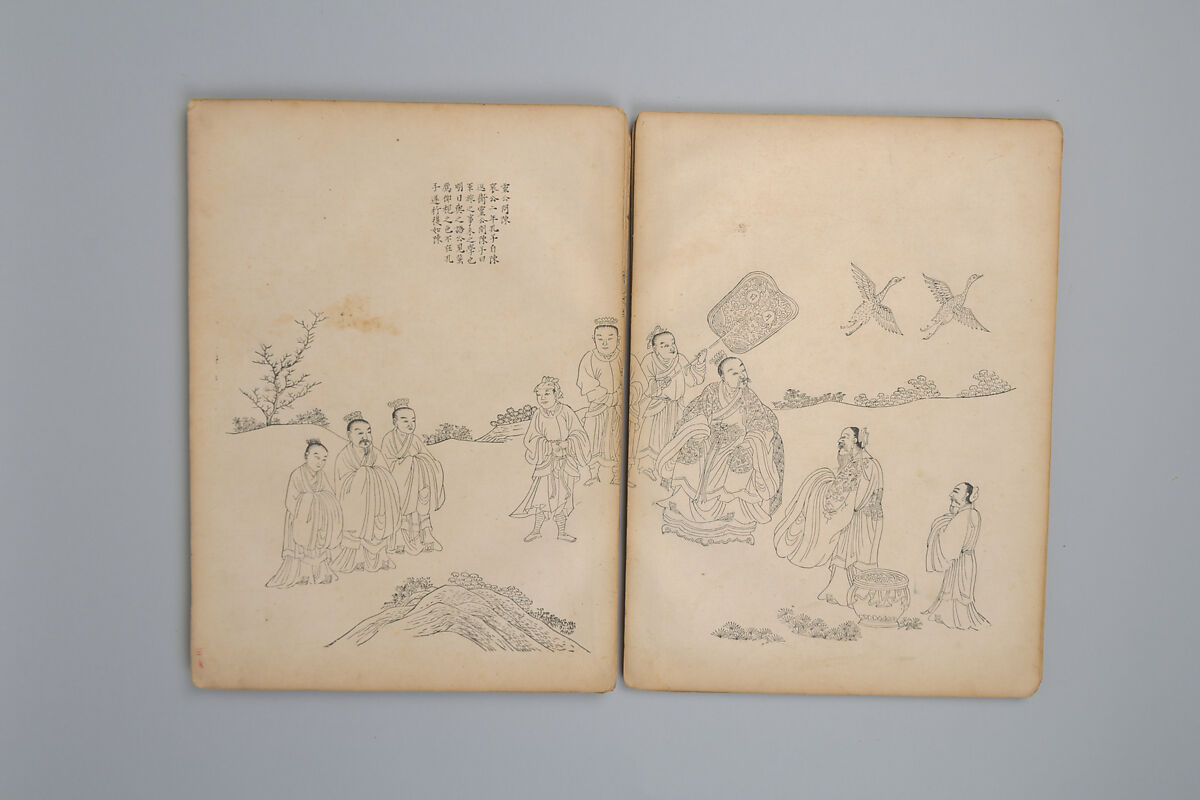 靈公問陳
哀公二年孔子自陳
返衛靈公問陳子曰
軍旅之事未之學也
明日與之語公見蜚
鴈仰視之色不在孔
子遂行復如陳